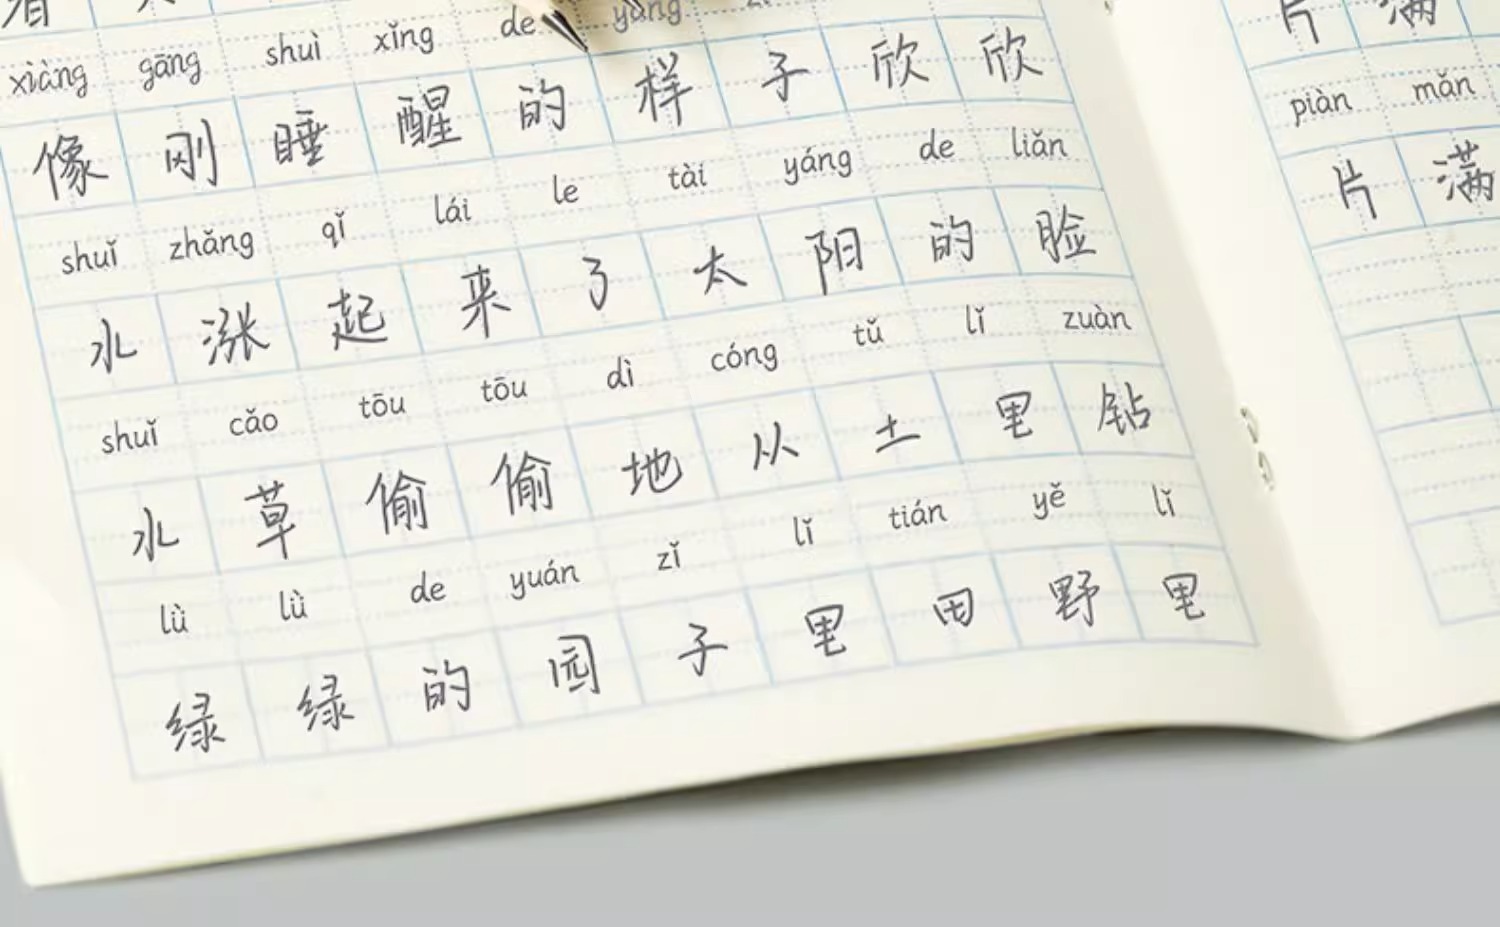 xiàng gāng shuì xǐng de yàng
像 刚 睡 醒 的 样 子 欣 欣
shuǐ zhǎng qǐ lái le tài yáng de liǎn
水 涨 起 来 了 太 阳 的 脸
shuǐ cǎo tōu tōu dì cóng tǔ lǐ zuàn
水 草 偷 偷 地 从 土 里 钻
lǜ lǜ de yuán zǐ lǐ tián yě lǐ
绿 绿 的 园 子 里 田 野 里
片 满
piàn mǎn
片 满